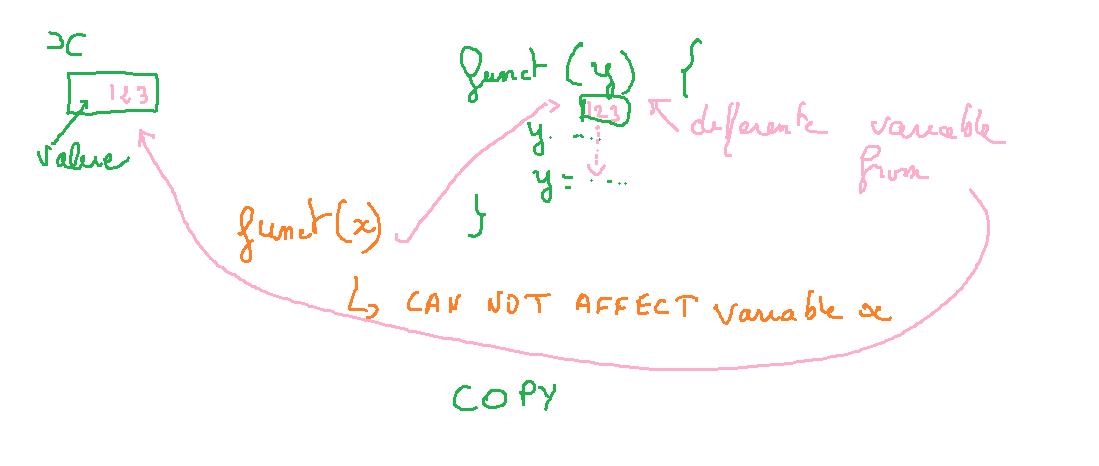 x
123
value
funct (y) {
123
y. ...
y = ....
}
deferente variable
from
funct(x)
CAN NOT AFFECT variable x
COPY